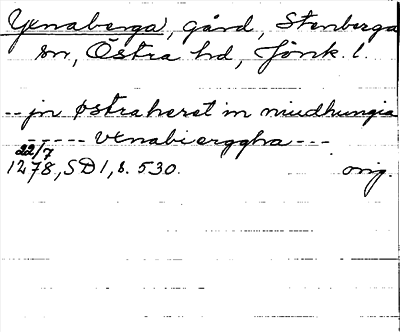 Venaberga, gård, Stenberga
sn, Östra hd, Jönk. l.
-- jn østraheret in niudhungia
----- venabierggha ---
22/7
1278, SD 1, s. 530. orig.